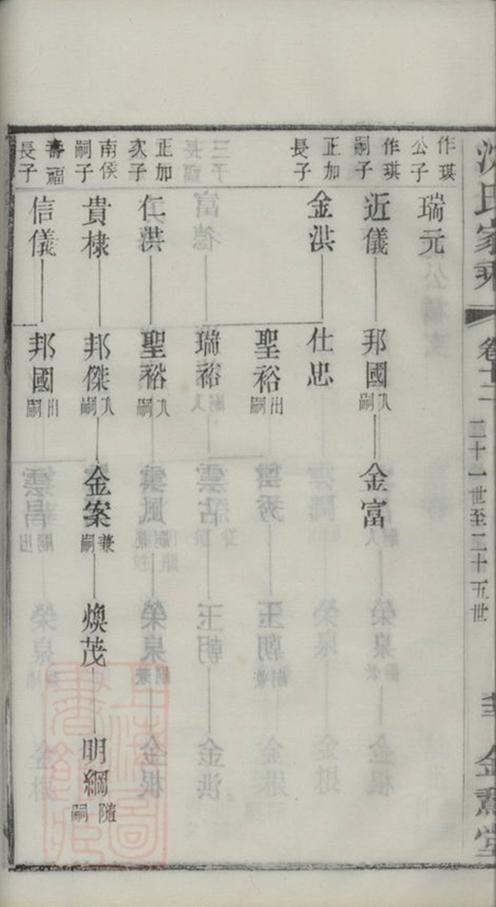 沈氏家乘
卷十二
二十一世至二十五世
作琪公子
瑞元
作琪嗣子
近儀
邦國入嗣
金富
正加長子
金洪
仕忠
聖裕出嗣
瑞裕
正加次子
仁洪
聖裕入嗣
南侯嗣子
貴棣
邦傑入嗣
金案兼嗣
煥茂
明綱隨嗣
壽福長子
信儀
邦國出嗣